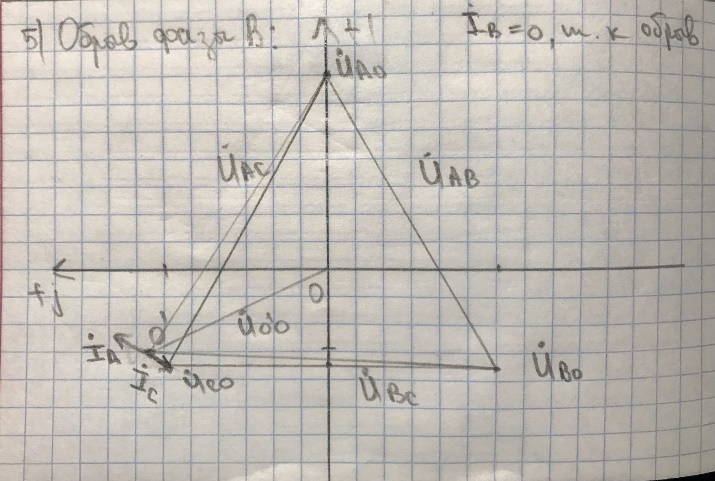 5) Обрыв фазы B: +1 İB = 0, т. к обрыв
U̇A0
U̇AC U̇AB
+j
0
0'
U̇0'0
İA
İC U̇C0 U̇B0
U̇BC